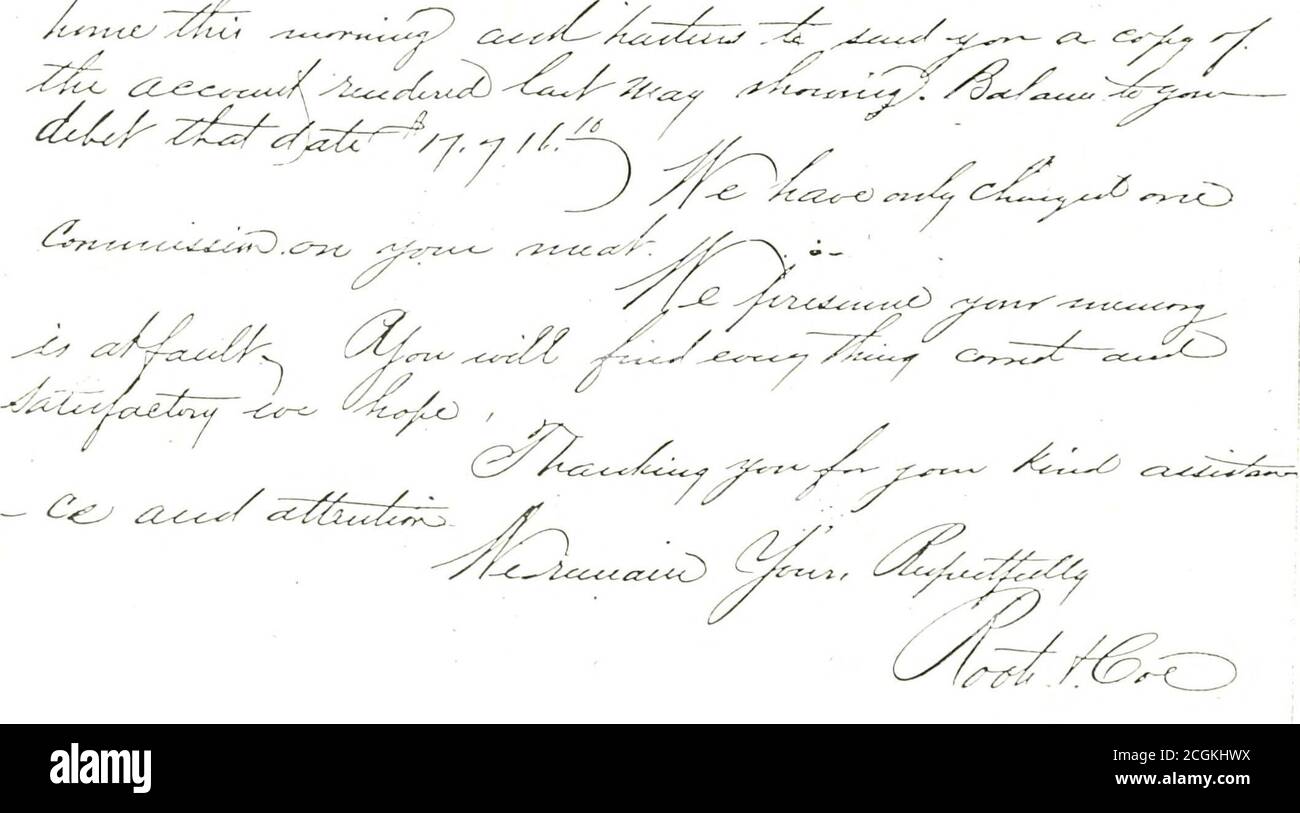 home this morning and hastens to send you a copy of
the account rendered last May showing. Balance to your
debit that date $17.716.10
We have only charged one
Commission on your meat.
We presume your memory
is at fault. You will find every thing correct and
satisfactory we hope,
Thanking you for your kind assistan
- ce and attention
We remain Yours, Respectfully
Root & Coe
alamy
alamy
Image ID: 2CGKHWX
www.alamy.com